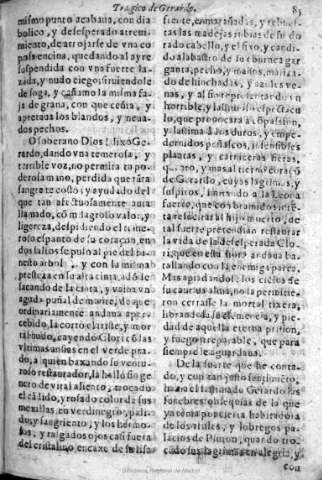 Tragico de Gerardo. 83
mismo punto acabaua, con dia
bolico, y desesperado atreui-
miento, de arrojarse de vna co
suspendida con vna fuerte la-
zada, y nudo ciego, siruiendole
de soga, y la misma fa
ja de grana, con que ceñia, y
apretaua los blandos, y neua-
dos pechos.
O soberano Dios! dixo Ge-
rardo, dando vna temerosa, y
terrible voz, no permita tu po-
derosa mano, perdida que tāta
sangre te costò: y ayudado del
que tan afectuosamente auia
llamado, cō milagroso valor, y
ligereza, despidiendo el teme-
roso espanto de su coraçon, en
dos saltos se puso al pie del
arbol, y con la misma
presteza en su alta cima, adōde
sacando de la cinta, y vaina vn
puñal de monte, de que
ordinariamente andaua aper-
cebido, la cortò el triste, y mor
tal ñudo, cayendo Gloris
vltimas ansias en el verde pra-
do, a quien baxando su ventu-
roso restaurador, la hallò sin ge
nero de vital aliento, trocado
el calido, y rosado color de sus
mexillas, en verdinegro, pali-
do, y sangriento, y los hermo-
sos, y rasgados ojos casi fuera
del cristalino encaxe de su
siente,
las madejas rubias de su do
rado cabello, y el liso, y candi-
do alabastro de su eburnea gar
ganta, pecho, y manos,
de hinchadas, y azules ve-
nas, y al fin
horrible, y
lo, que prouocara à cōpasion,
y lastima à los duros, y empe-
dernidos peñascos, insensibles
plantas, y carniceras fieras,
y mas al tierno coraçō
de Gerardo, cuyas lagrimas, y
suspiros, imitando a la Leona
fuerte, que con bramidos inten
ta resucitar al hijo muerto, de
tal suerte pretendian restaurar
la vida de la desesperada Clo-
ri, que en esta sazon andaua ba
tallando con la enemiga parca.
Mas apiadandose los cielos de
su causa, no lo permitie-
ron cerrasse la mortal tixera,
librandola
dad de aquella eterna prision,
y fuego irreparable, que para
siempre le aguardaua.
De la suerte que he conta-
do, y con tan justo sentimiēto,
hazia el lastimado Gerardo las
funebres obsequias de la que
ya tenia por cierta habitadora
de los tristes, y lobregos pa-
lacios de Pluton, quando tro-
cado sus lagrimas en alegria, y
con
Biblioteca Regional de Madrid